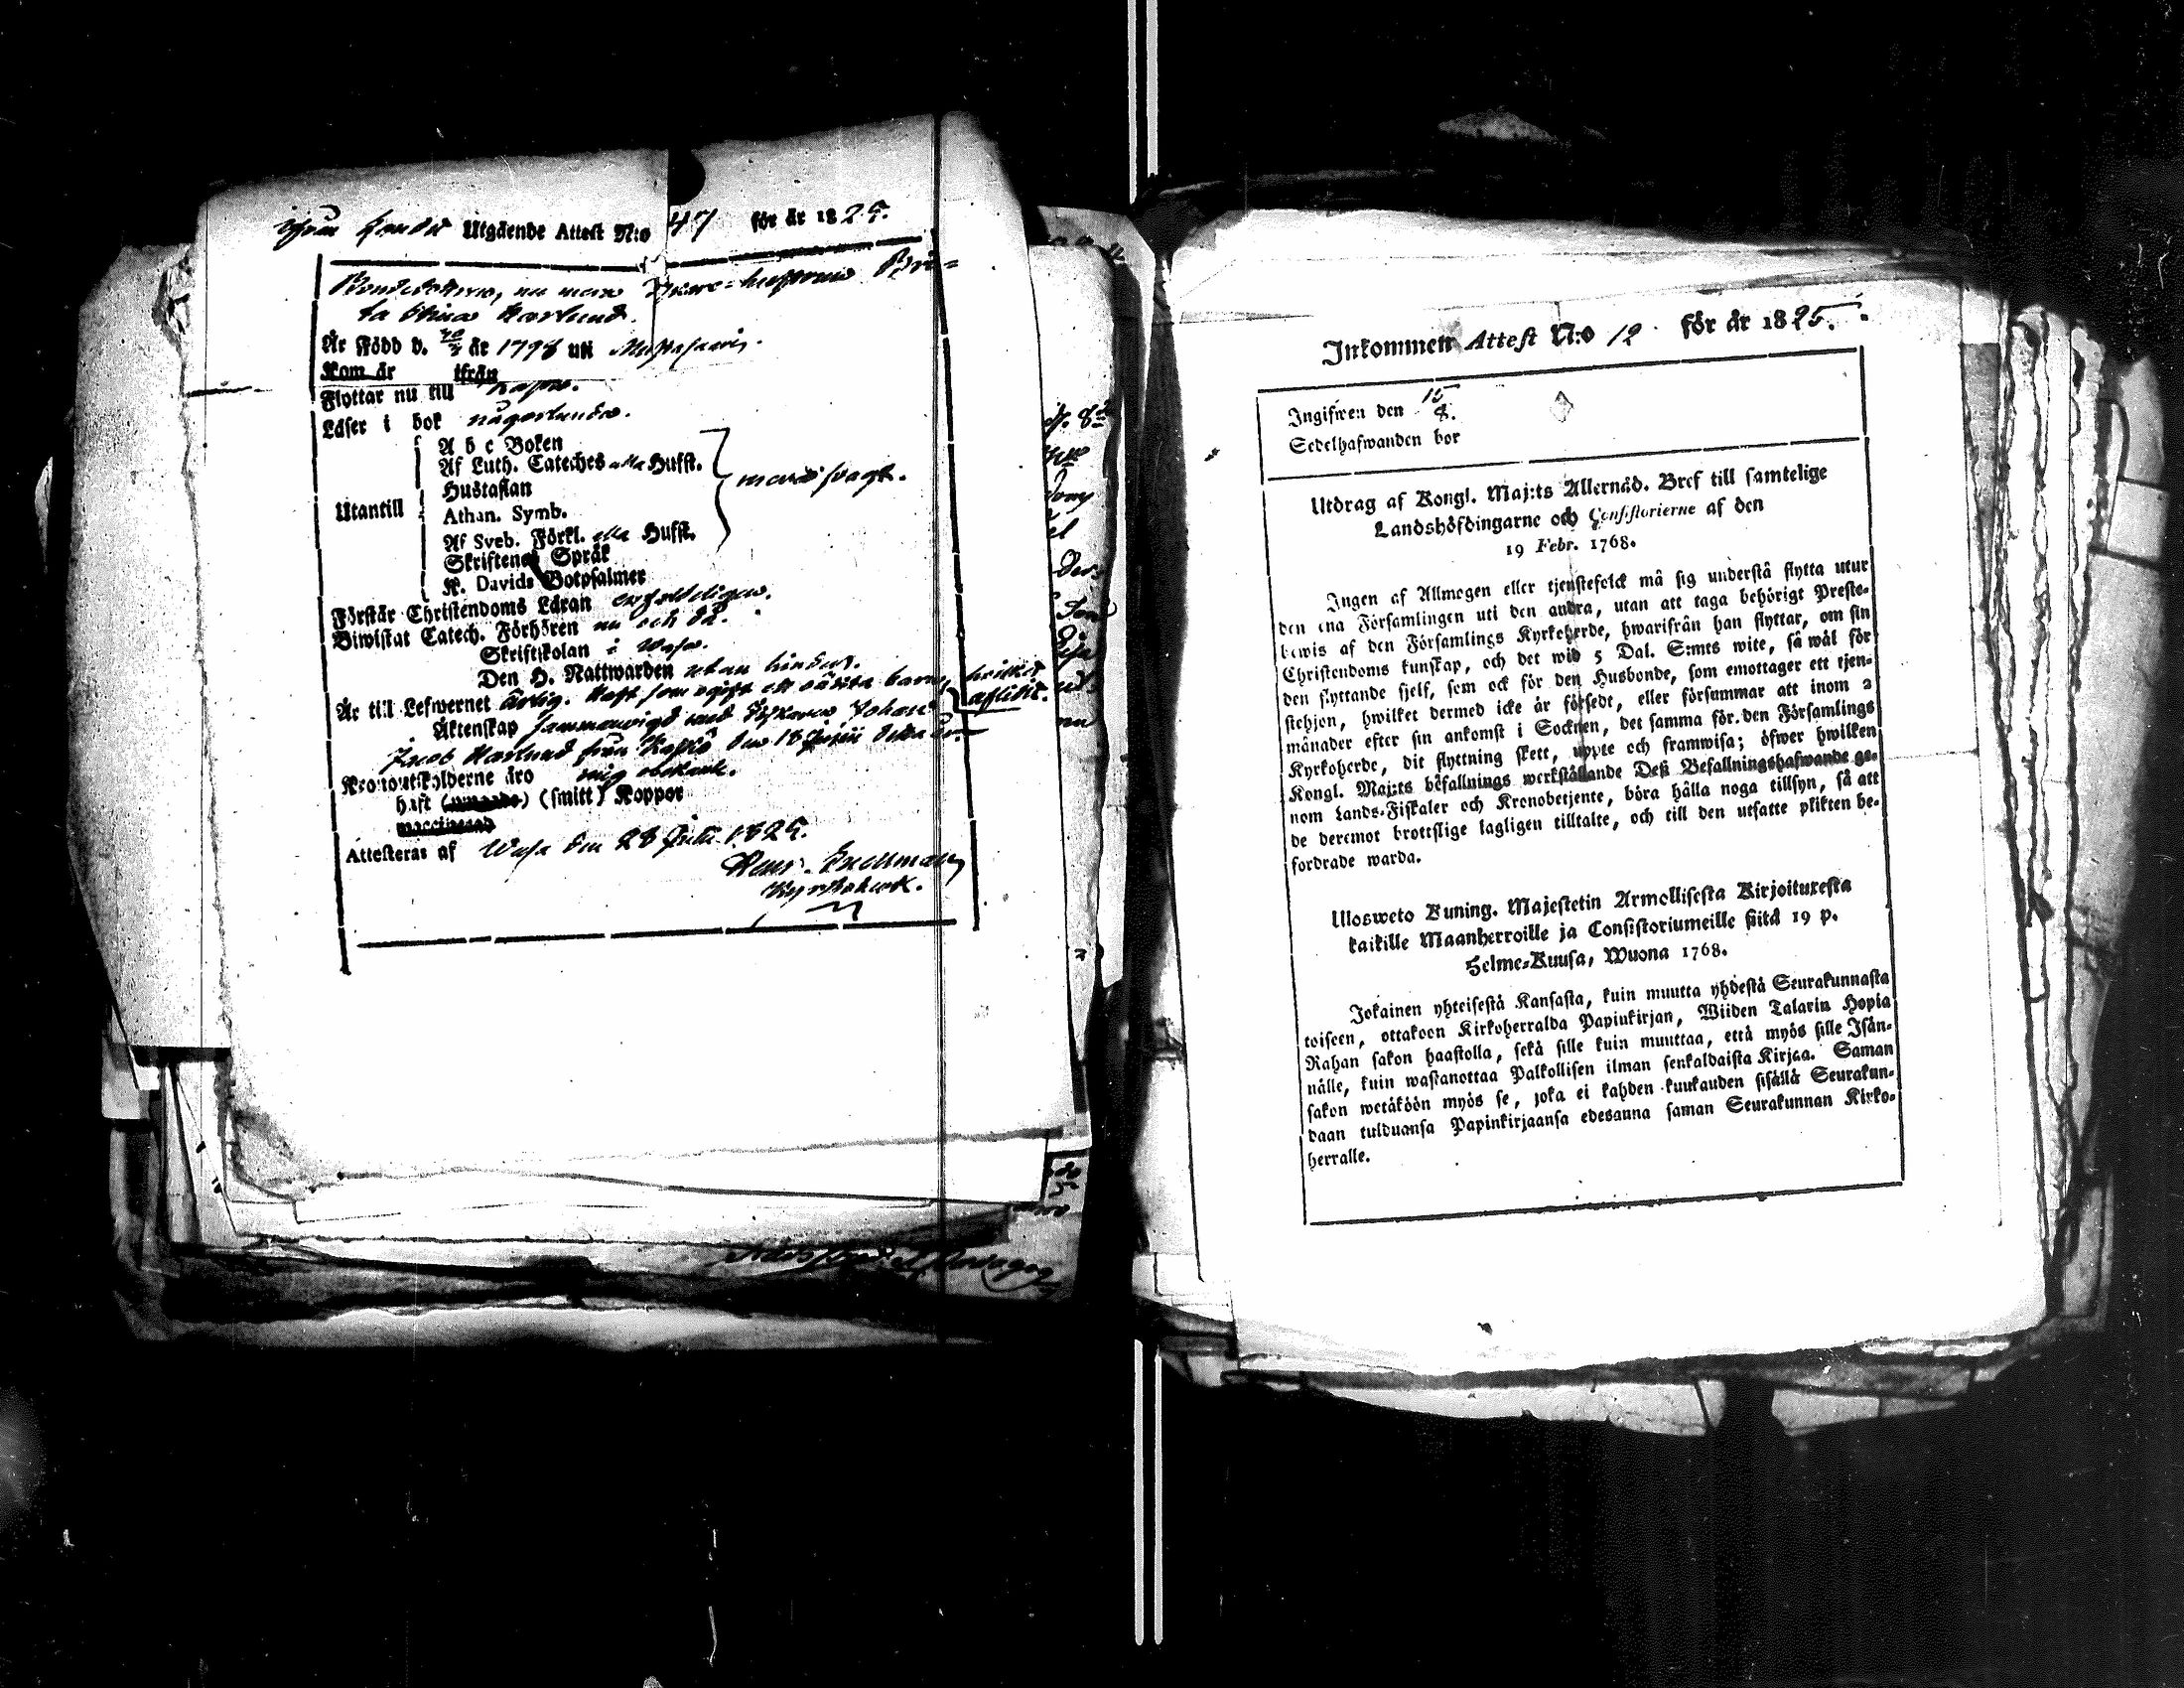 Utgående Attest N:o 47 för år 1825.
Bondedottren, nu mera hustrun Bri=
ta Stina Karlund.
År Född d. år 1798 uti Mustasaari.
Kom år ifrån
Flyttar nu till Kaskö.
Läser i bok någorlunda.
A b c Boken
Af Luth. Cateches Hufst.
Hustaflan
Utantill
Athan. Symb.
mera svagt.
Af Sveb. Förkl. Hufst.
Skriftenes Språk
K. Davids Botpsalmer
Förstår Christendoms Läran enfaldeligen.
Biwistat Catech. Förhören nu och då.
Skriftskolan i Wasa.
Den H. Nattwarden utan hinder.
År till Lefwernet ärlig. Haft som ogift ett oäkta barn, hvilket aflidit.
Äktenskap sammanvigd med Johan
Jacob Karlund från Kaskö den 18 Junii detta år.
Kronoutskylderne äro mig obekante.
haft (smitt) Koppor
Attesteras af Wasa den 28 Julii 1825.
Inkommen Attest N:o 12 för år 1825.
Ingifwen den 15/8.
Sedelhafwanden bor
Utdrag af Kongl. Maj:ts Allernåd. Bref till samtelige
Landshöfdingarne och Consistorierne af den
19 Febr. 1768.
Ingen af Allmogen eller tjenstefolck må sig understå flytta utur
den ena Församlingen uti den andra, utan att taga behörigt Preste-
bewis af den Församlings Kyrkoherde, hwarifrån han flyttar, om sin
Christendoms kunskap, och det wid 5 Dal. S:mts wite, så wäl för
den flyttande sjelf, som ock för den Husbonde, som emottager ett tjen-
stehjon, hwilket dermed icke är försedt, eller försummar att inom 2
månader efter sin ankomst i Socknen, det samma för den Församlings
Kyrkoherde, dit flyttning skett, uppte och framwisa; öfwer hwilken
Kongl. Maj:ts befallnings werkställande Deß Befallningshafwande ge-
nom Lands-Fiskaler och Kronobetjente, böra hålla noga tillsyn, så att
de deremot brottslige lagligen tilltalte, och till den utsatte plikten be-
fordrade warda.
Ulosweto Kuning. Majestetin Armollisesta Kirjoituxesta
kaikille Maanherroille ja Consistoriumeille siitä 19 p.
Helme-Kuusa, Wuona 1768.
Jokainen yhteisestä Kansasta, kuin muutta yhdestä Seurakunnasta
toiseen, ottakoon Kirkoherralda Papinkirjan, Wiiden Talarin Hopia
Rahan sakon haastolla, sekä sille kuin muuttaa, että myös sille Isän-
nälle, kuin wastanottaa Palkollisen ilman senkaldaista Kirjaa. Saman
sakon wetäköön myös se, joka ei kahden kuukauden sisällä Seurakun-
daan tulduansa Papinkirjaansa edesanna saman Seurakunnan Kirko-
herralle.